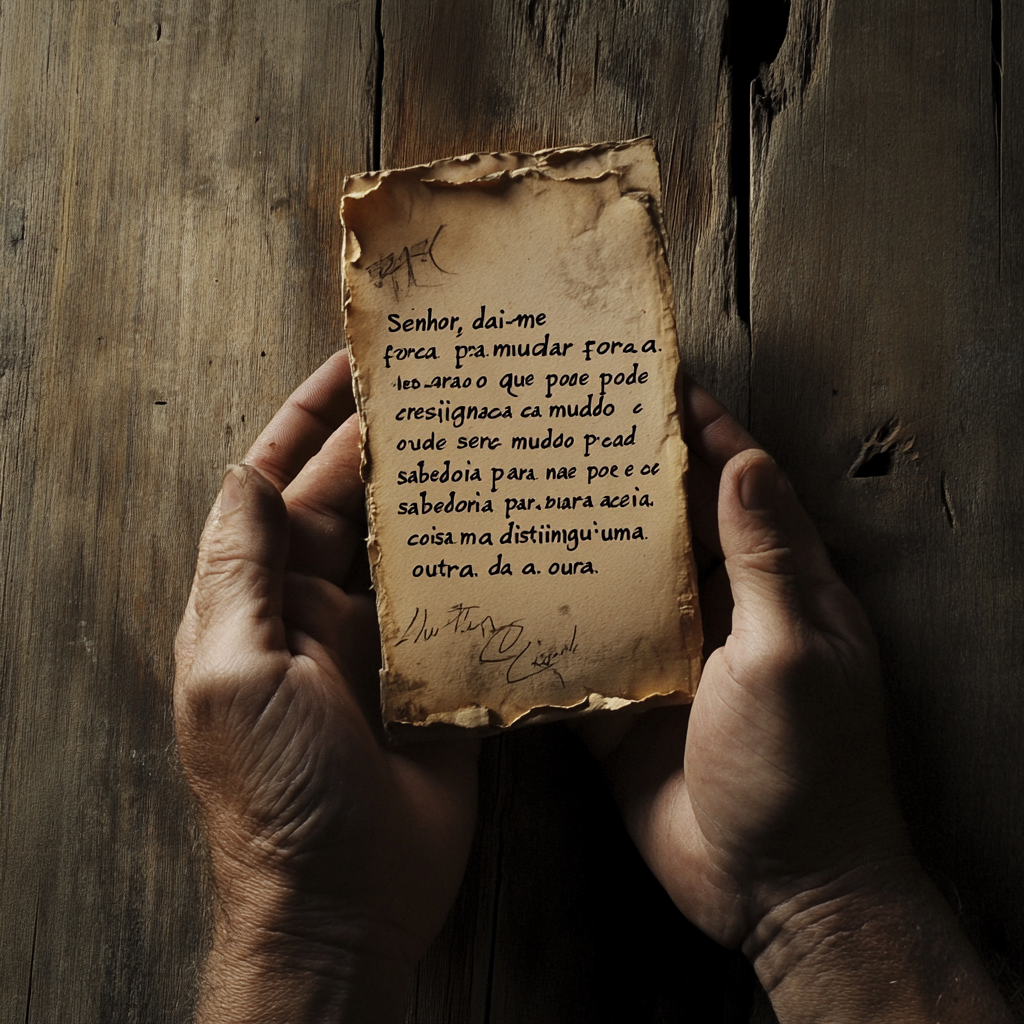 Senhor, dai-me
forca pra mudar fora a.
que pose pode
cresiignaca ca muddo c
oude sere muddo p·cad
sabedoia para nae poe e oc
sabedoria par. bıara aceia.
coisa ma distiingu'uma.
outra. da a. oura.